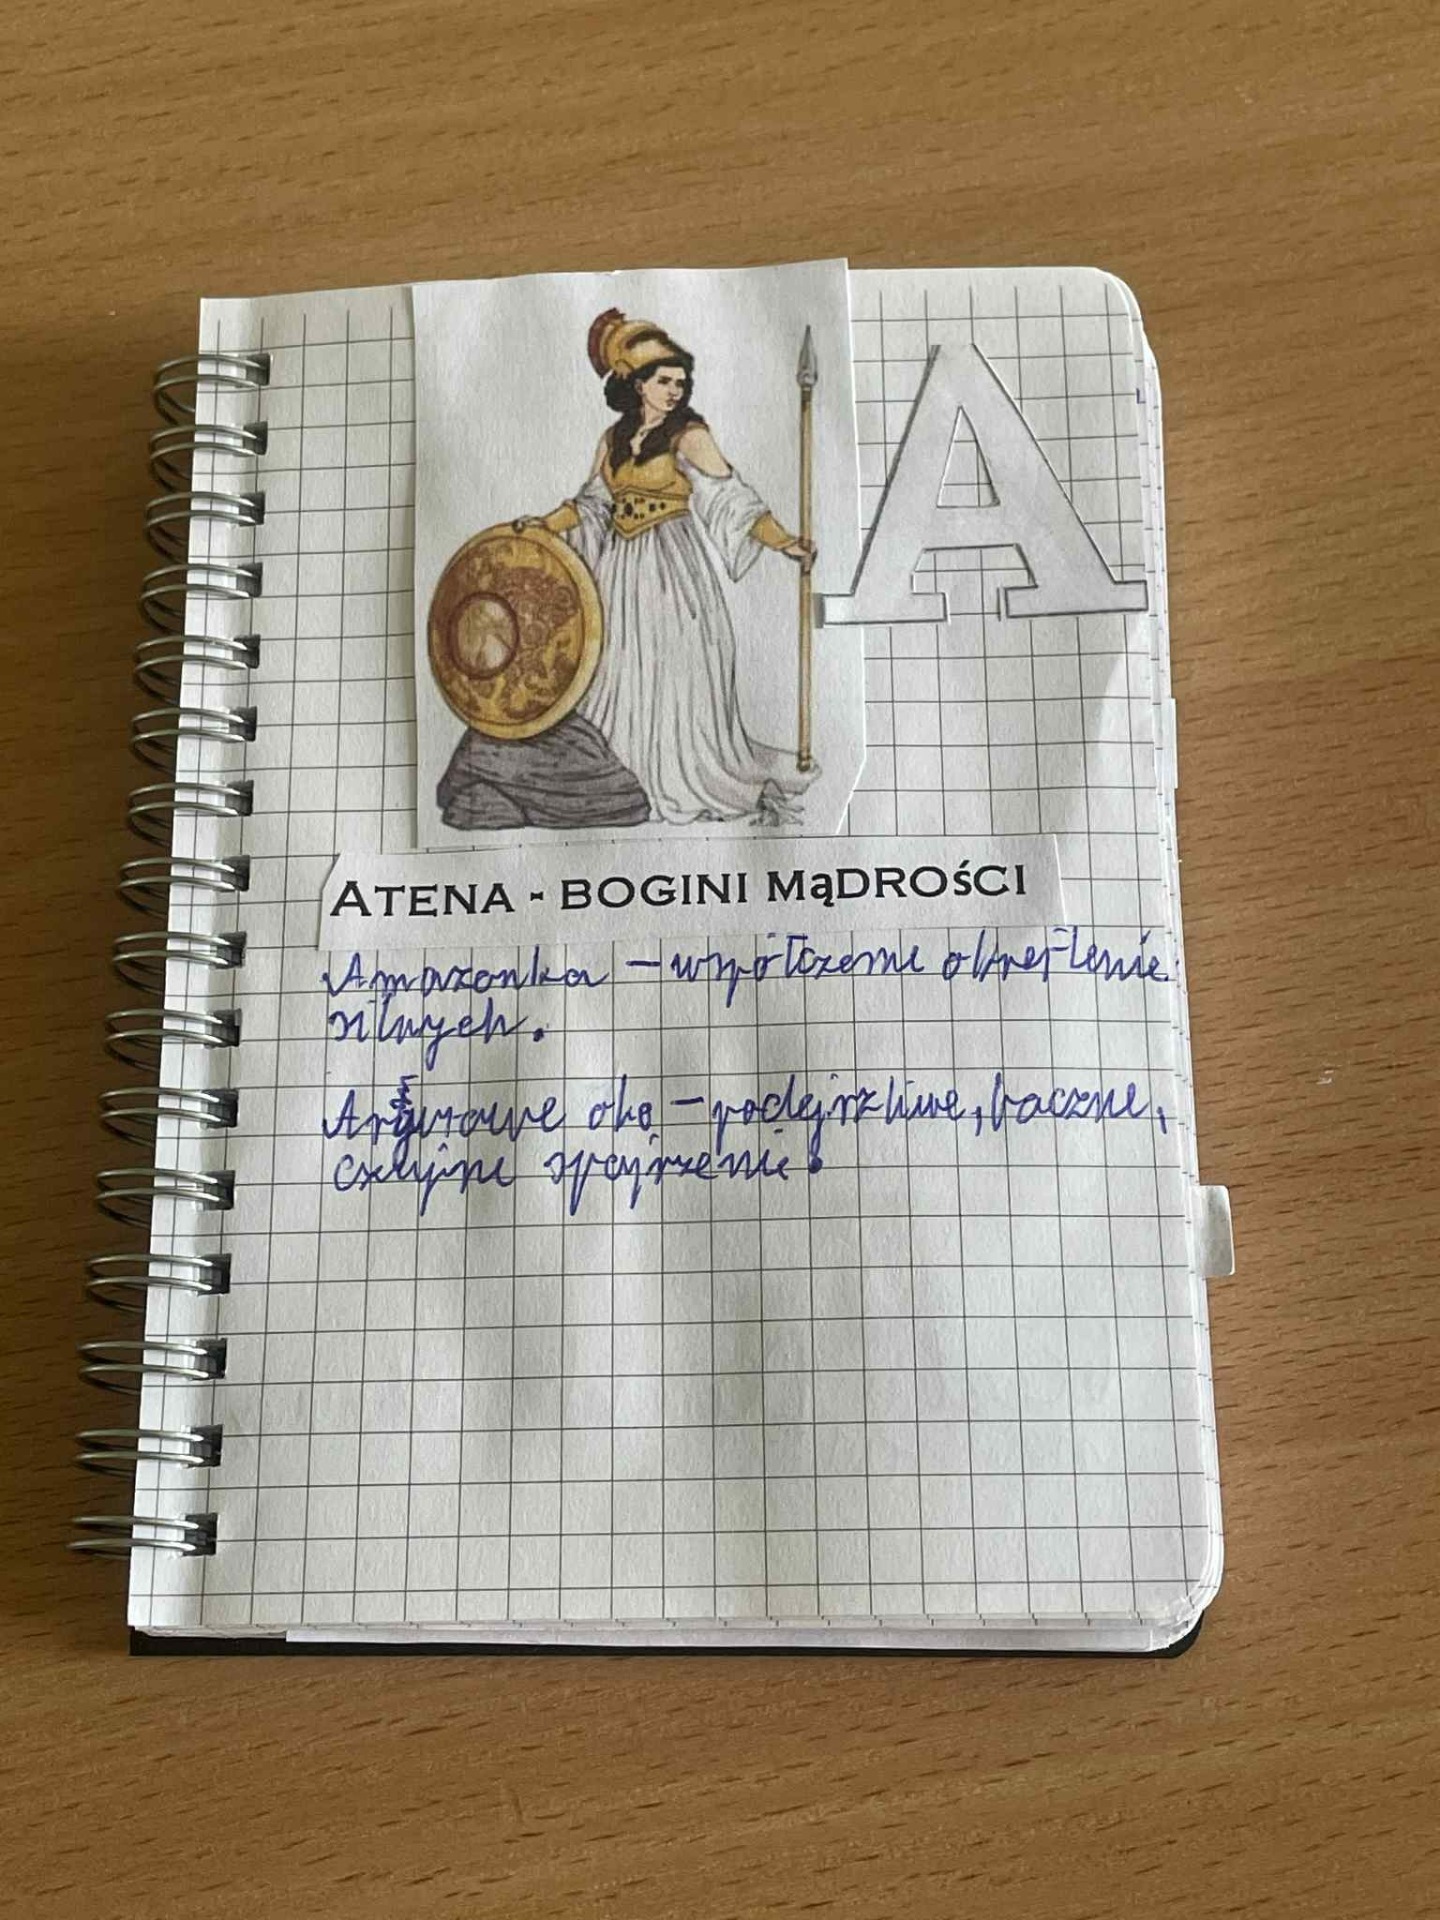 A
ATENA - BOGINI MąDROśCI
Amazonka - współczesne określenie
silnych.
Argusowe oko - podejrzliwe, baczne,
czujne spojrzenie.